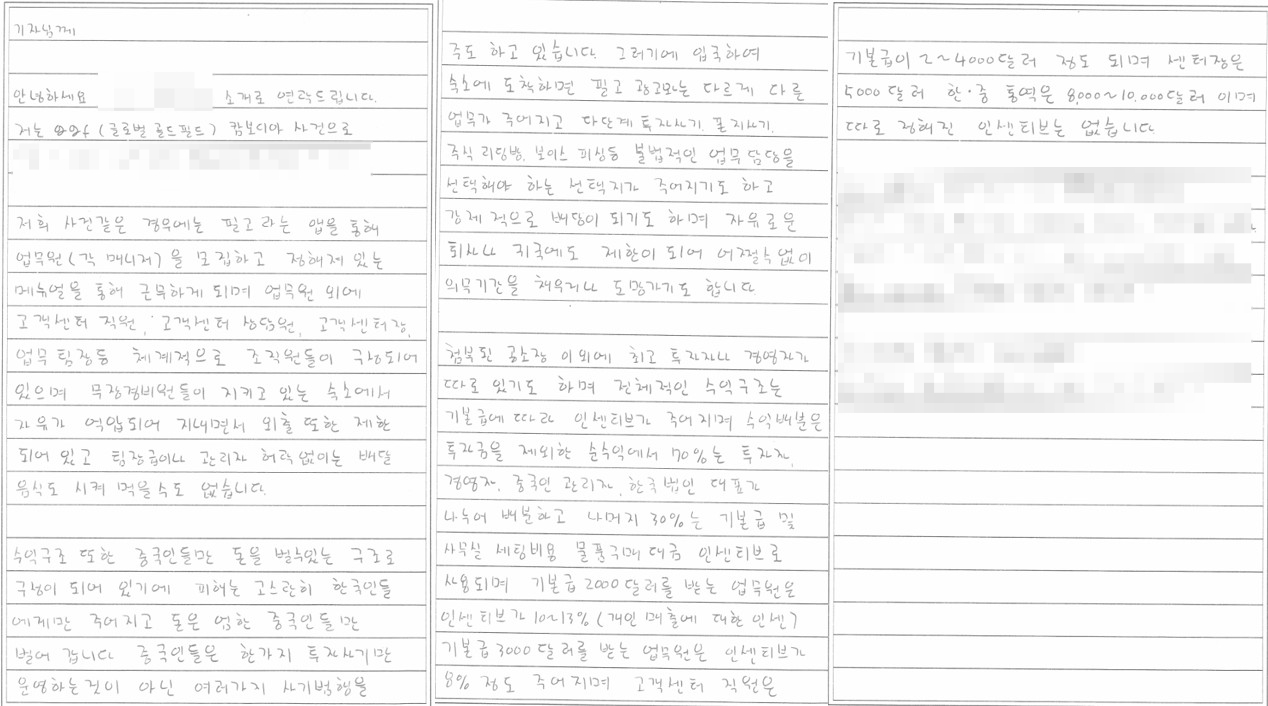 기자님께
안녕하세요 소개로 연락드립니다.
저는 (글로벌 골드필드) 캄보디아 사건으로
저희 사건같은 경우에는 필고라는 앱을 통해
업무원(각 매니저)을 모집하고 정해져 있는
메뉴얼을 통해 근무하게 되며 업무원 외에
고객센터 직원, 고객센터 상담원, 고객센터장,
업무팀장등 체계적으로 조직원들이 구성되어
있으며 무장경비원들이 지키고 있는 숙소에서
자유가 억압되어 지내면서 외출 또한 제한
되어 있고 팀장급이나 관리자 허락없이는 배달
음식도 시켜 먹을수도 없습니다.
수익구조 또한 중국인들만 돈을 벌수있는 구조로
구성이 되어 있기에 피해는 고스란히 한국인들
에게만 주어지고 돈은 엄한 중국인들만
벌어 갑니다 중국인들은 한가지 투자사기만
운영하는것이 아닌 여러가지 사기범행을
주도 하고 있습니다. 그러기에 입국하여
숙소에 도착하면 필고 광고와는 다르게 다른
업무가 주어지고 다단계 투자사기, 폰지사기,
주식 리딩방, 보이스 피싱등 불법적인 업무 담당을
선택해야 하는 선택지가 주어지기도 하고
강제적으로 배당이 되기도 하며 자유로운
퇴사나 귀국에도 제한이 되어 어쩔수 없이
의무기간을 채우거나 도망가기도 합니다
첨부된 공소장 이외에 최고 투자자나 경영자가
따로 있기도 하며 전체적인 수익구조는
기본급에 따라 인센티브가 주어지며 수익배분은
투자금을 제외한 순수익에서 70%는 투자자,
경영자, 중국인 관리자, 한국법인 대표가
나누어 배분하고 나머지 30%는 기본급 및
사무실 세팅비용 물품구매 대금 인센티브로
사용되며 기본급 2000달러를 받는 업무원은
인센티브가 10~13% (개인 매출에 대한 인센)
기본급 3000달러를 받는 업무원은 인센티브가
8% 정도 주어지며 고객센터 직원은
기본급이 2~4000달러 정도 되며 센터장은
5000달러 한·중 통역은 8,000~10,000달러 이며
따로 정해진 인센티브는 없습니다